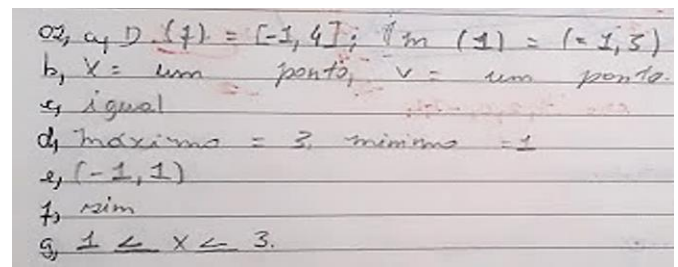 01, a, D (f) = [-1, 4]; Im (1) = (-1, 3)
b, X = um ponto, v = um ponto.
c, igual
d, máximo = 3. minimo = 1
e, (-1, 1)
f, sim
g, 1 < x < 3.